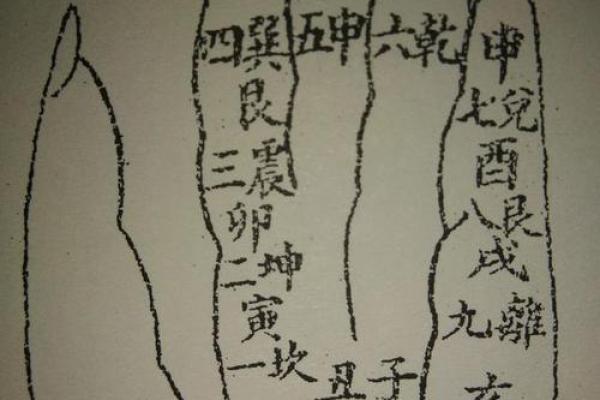 四巽 五申 六乾 申
艮
七兌
三震
酉
卯
八艮
二坤
戌
寅
九離
一坎
丑子